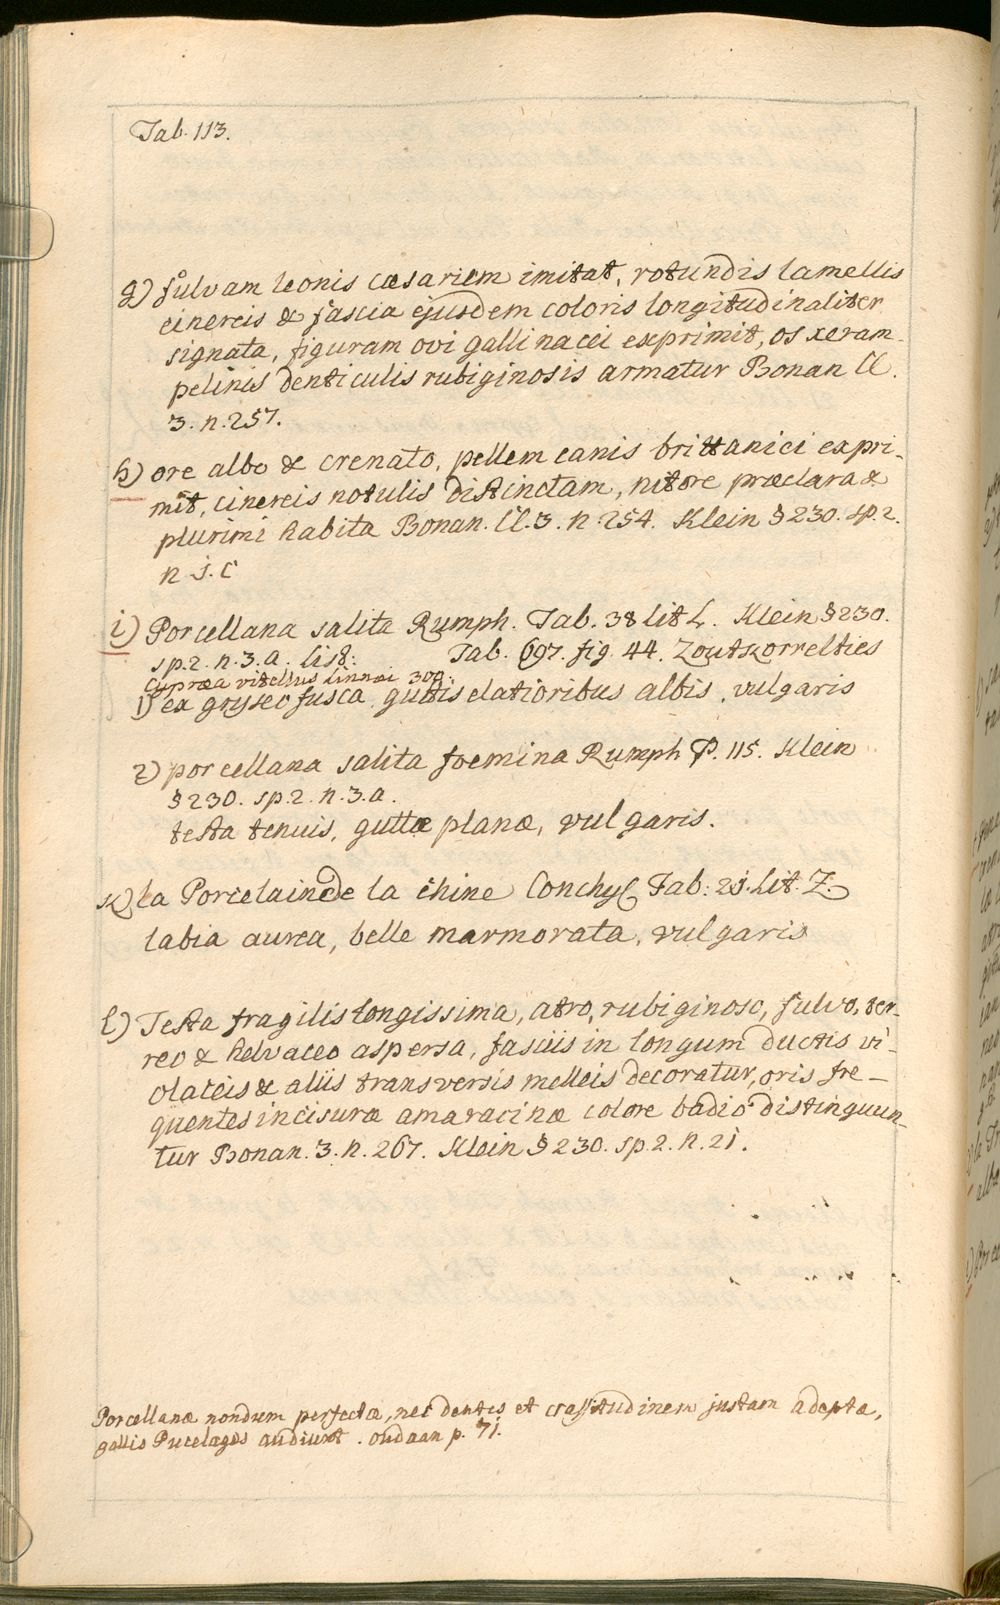 Tab. 113.
g) fulvam leonis cæsariem imitat, rotundis lamellis
cinereis & fascia ejusdem coloris longitudinaliter
signata, figuram ovi gallinacei exprimit, os xeram-
pelinis denticulis rubiginosis armatur Bonan Cl.
3. n. 257.
h) ore albo & crenato, pellem canis brittanici expri-
mit, cinereis notulis distinctam, nitore præclara &
plurimi habita Bonan. Cl. 3. n. 254. Klein § 230. sp. 2.
n 5. c
i) Porcellana salita Rumph. Tab. 38 lit L. Klein § 230.
sp. 2. n. 3. a. list: Tab. 697. fig. 44. Zoutkorrelties
Cypræa vitellus Linnæi 309.
1) ex gryseo fusca guttis elatioribus albis, vulgaris
2) porcellana salita foemina Rumph P. 115. Klein
§ 230. sp. 2. n. 3. a.
testa tenuis, guttæ planæ, vulgaris.
k) La Porcelaine de la chine Conchyl Tab: 21. Lit. Z.
labia aurea, belle marmorata, vulgaris
l) Testa fragilis longissima, atro, rubiginoso, fulvo, ter-
reo & helvaceo aspersa, fasciis in longum ductis vi-
olaceis & aliis transversis melleis decoratur, oris fre-
quentes incisuræ amaracinæ colore badio distinguun-
tur Bonan. 3. n. 267. Klein § 230. sp. 2. n. 21.
Porcellanæ nondum perfectæ, nec dentes et crassitudinem justam adeptæ,
gallis Pucelages audiunt. oudaan p. 71.